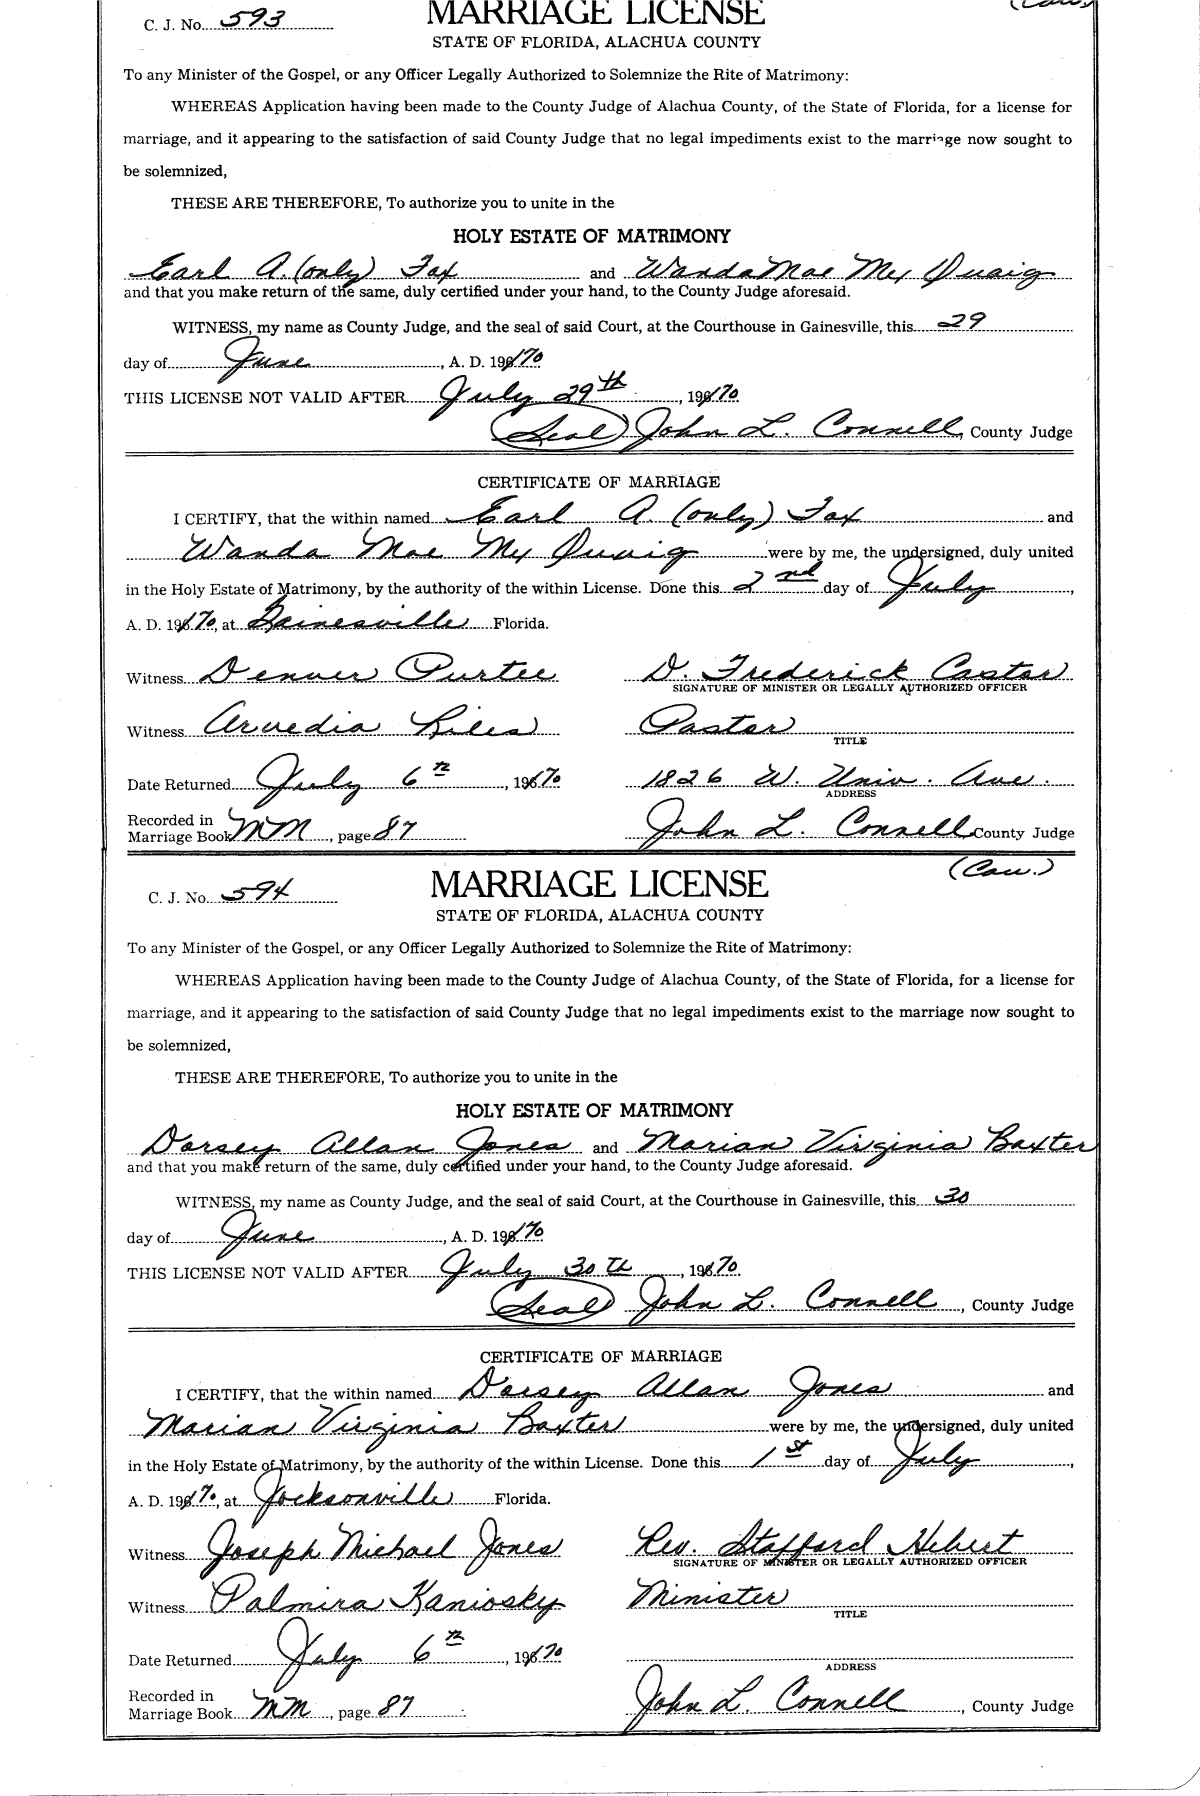 (Cau.)
C. J. No. 593 MARRIAGE LICENSE
STATE OF FLORIDA, ALACHUA COUNTY
To any Minister of the Gospel, or any Officer Legally Authorized to Solemnize the Rite of Matrimony:
WHEREAS Application having been made to the County Judge of Alachua County, of the State of Florida, for a license for
marriage, and it appearing to the satisfaction of said County Judge that no legal impediments exist to the marriage now sought to
be solemnized,
THESE ARE THEREFORE, To authorize you to unite in the
HOLY ESTATE OF MATRIMONY
Earl A. (only) Fox and Wanda Mae Mc Quaig
and that you make return of the same, duly certified under your hand, to the County Judge aforesaid.
WITNESS, my name as County Judge, and the seal of said Court, at the Courthouse in Gainesville, this 29
day of June, A. D. 1970
THIS LICENSE NOT VALID AFTER July 29th, 1970
(Seal) John L. Connell, County Judge
CERTIFICATE OF MARRIAGE
I CERTIFY, that the within named Earl A. (only) Fox and
Wanda Mae Mc Quaig were by me, the undersigned, duly united
in the Holy Estate of Matrimony, by the authority of the within License. Done this 2nd day of July,
A. D. 1970, at Gainesville Florida.
Witness Denver Purtee D. Frederick Castor
SIGNATURE OF MINISTER OR LEGALLY AUTHORIZED OFFICER
Witness Arvedia Liles Pastor
TITLE
Date Returned July 6th, 1970 1826 W. Univ. Ave.
ADDRESS
Recorded in
Marriage Book MM, page 87 John L. Connell County Judge
(Cau.)
C. J. No. 594 MARRIAGE LICENSE
STATE OF FLORIDA, ALACHUA COUNTY
To any Minister of the Gospel, or any Officer Legally Authorized to Solemnize the Rite of Matrimony:
WHEREAS Application having been made to the County Judge of Alachua County, of the State of Florida, for a license for
marriage, and it appearing to the satisfaction of said County Judge that no legal impediments exist to the marriage now sought to
be solemnized,
THESE ARE THEREFORE, To authorize you to unite in the
HOLY ESTATE OF MATRIMONY
Dorsey Allan Jones and Marian Virginia Baxter
and that you make return of the same, duly certified under your hand, to the County Judge aforesaid.
WITNESS, my name as County Judge, and the seal of said Court, at the Courthouse in Gainesville, this 30
day of June, A. D. 1970
THIS LICENSE NOT VALID AFTER July 30th, 1970
(Seal) John L. Connell, County Judge
CERTIFICATE OF MARRIAGE
I CERTIFY, that the within named Dorsey Allan Jones and
Marian Virginia Baxter were by me, the undersigned, duly united
in the Holy Estate of Matrimony, by the authority of the within License. Done this 1st day of July,
A. D. 1970, at Jacksonville Florida.
Witness Joseph Michael Jones Rev. Stafford Hebert
SIGNATURE OF MINISTER OR LEGALLY AUTHORIZED OFFICER
Witness Palmira Kaniosky Minister
TITLE
Date Returned July 6th, 1970
ADDRESS
Recorded in
Marriage Book MM, page 87 John L. Connell, County Judge